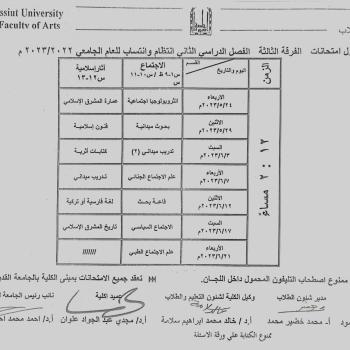 ssiut University
Faculty of Arts
ل امتحانات الفرقة الثالثة الفصل الدراسي الثاني انتظام وانتساب للعام الجامعي ٢٠٢٣/٢٠٢٢ م
الزمن
قسم
اليوم والتاريخ
الاجتماع
آثار إسلامية
س١٢-١٣
١٢ : ٢ مساءً
الأربعاء ٢٠٢٣/٥/٢٤م
انثروبولوجيا اجتماعية
عمارة المشرق الإسلامي
الاثنين ٢٠٢٣/٥/٢٩م
بحوث ميدانية
فنون إسلامية
السبت ٢٠٢٣/٦/٣م
تدريب ميداني (٢)
كتابات أثرية
الأربعاء ٢٠٢٣/٦/٧م
علم الاجتماع الجنائي
تدريب ميداني
الاثنين ٢٠٢٣/٦/١٢م
قاعة بحث
لغة فارسية أو تركية
السبت ٢٠٢٣/٦/١٧م
الاجتماع السياسي
تاريخ المشرق الإسلامي
الأربعاء ٢٠٢٣/٦/٢١م
علم الاجتماع الطبي
///////
ممنوع اصطحاب التليفون المحمول داخل اللجان.
تعقد جميع الامتحانات بمبنى الكلية بالجامعة
مدير شئون الطلاب
وكيل الكلية لشئون التعليم والطلاب
عميد الكلية
نائب رئيس الجامعة
أ. محمد خضير محمد
أ.د/ خالد محمد ابراهيم سلامة
أ.د/ مجدي عبد الجواد علوان
أ.د/ احمد محمد
ممنوع الكتابة علي ورقة الاسئلة